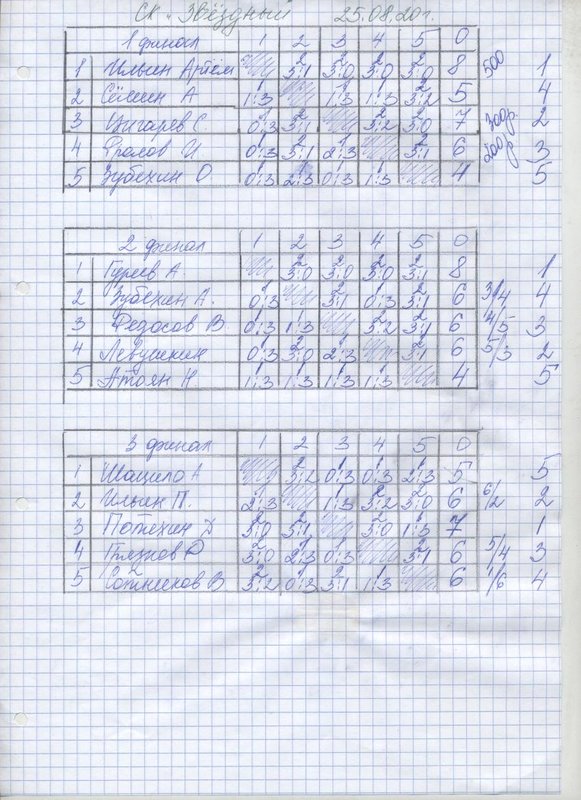 СК "Звёздный 25.08.20г.
1 финал 1 2 3 4 5 О
1 Ильин Артём 2 3:1 2 3:0 2 3:0 2 3:0 8 500 1
2 Сёмин А 1 1:3 1 1:3 1 1:3 2 3:2 5 4
3 Цигарев С. 1 0:3 2 3:1 2 3:2 2 3:0 7 300р. 2
4 Фролов И 1 0:3 2 3:1 1 2:3 2 3:1 6 200р 3
5 Зубехин О 1 0:3 1 2:3 1 0:3 1 1:3 4 5
2 финал 1 2 3 4 5 О
1 Гуреев А. 2 3:0 2 3:0 2 3:0 2 3:1 8 1
2 Зубехин А. 1 0:3 2 3:1 1 0:3 2 3:1 6 3/4 4
3 Федосов В. 1 0:3 1 1:3 2 3:2 2 3:1 6 4/5 3
4 Левушкин 1 0:3 2 3:0 1 2:3 2 3:1 6 5/3 2
5 Атоян Н 1 1:3 1 1:3 1 1:3 1 1:3 4 5
3 финал 1 2 3 4 5 О
1 Шашло А 2 3:2 1 0:3 1 0:3 1 2:3 5 5
2 Ильин П. 1 2:3 1 1:3 2 3:2 2 3:0 6 6/2 2
3 Потехин Д 2 3:0 2 3:1 2 3:0 1 1:3 7 1
4 Грязнов Р 2 3:0 1 2:3 1 0:3 2 3:1 6 5/4 3
5 Сотников В 2 3:2 1 0:3 2 3:1 1 1:3 6 1/6 4